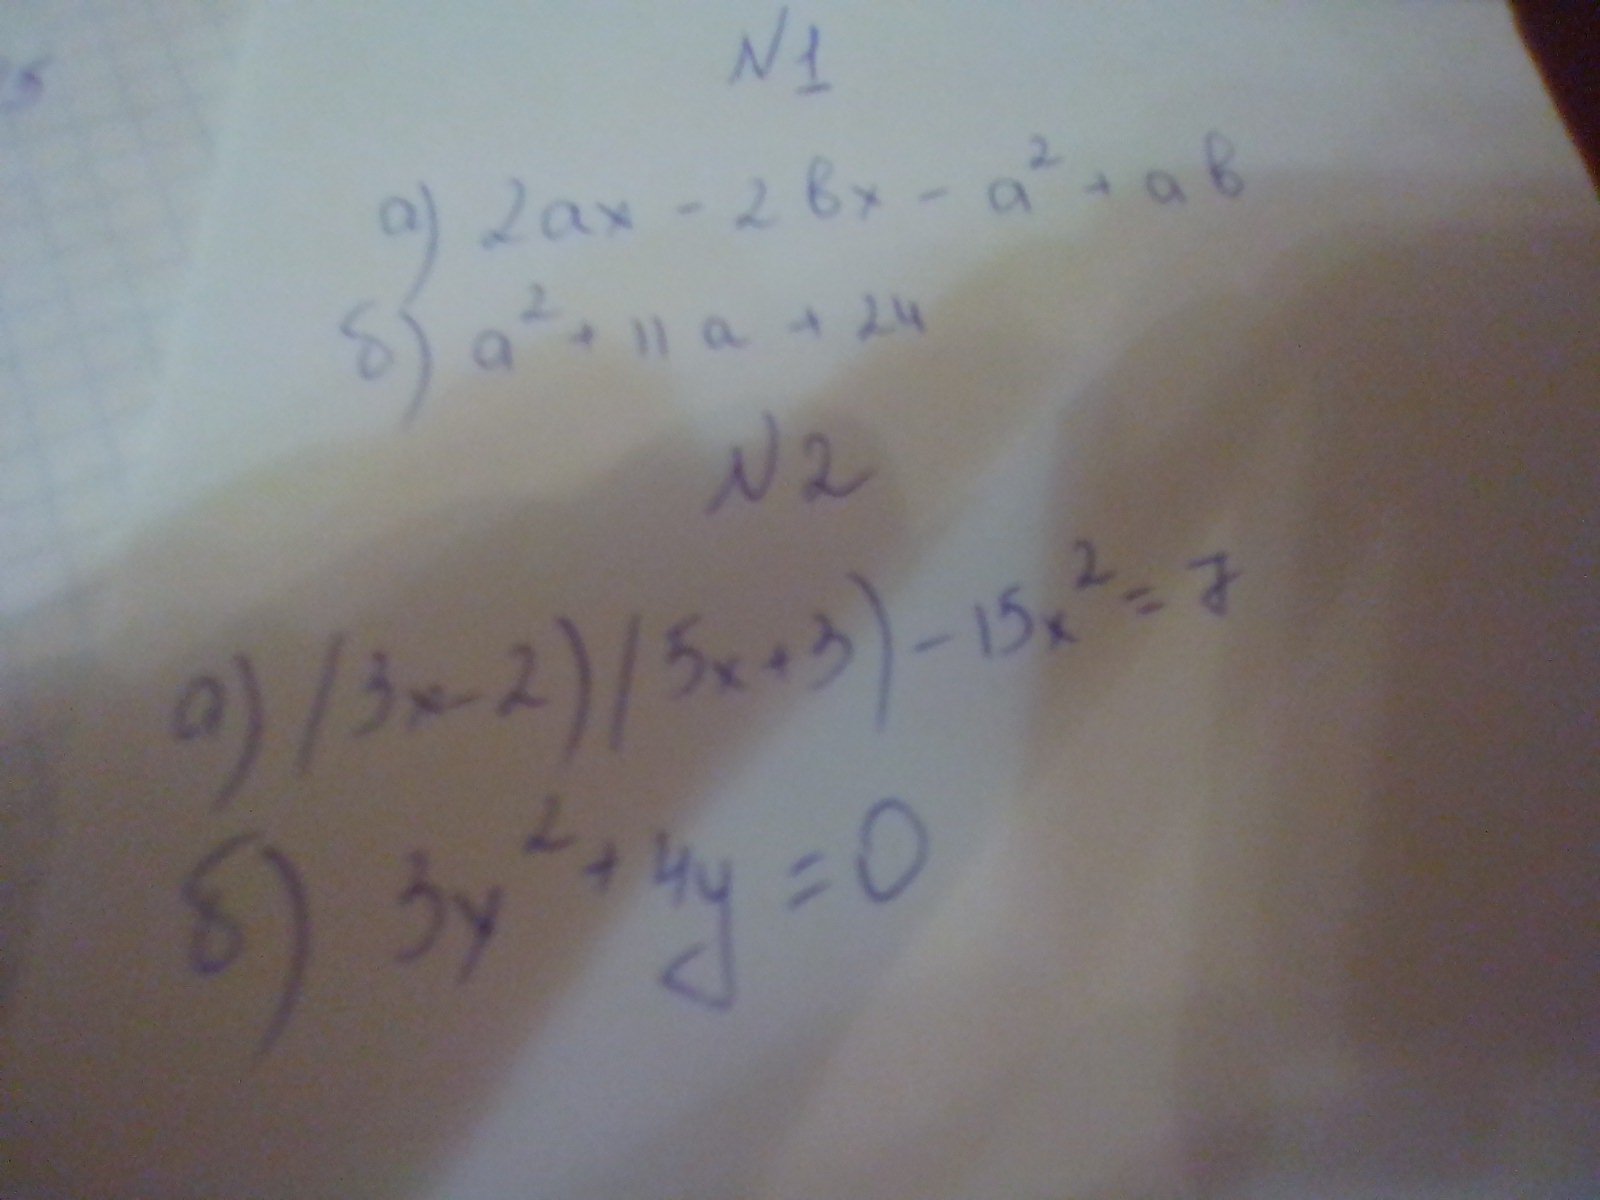 N1
а) 2ax - 2bx - a² + ab
б) a² + 11a + 24
N2
а) (3x-2)(5x+3) - 15x² = 7
б) 3y² + 4y = 0